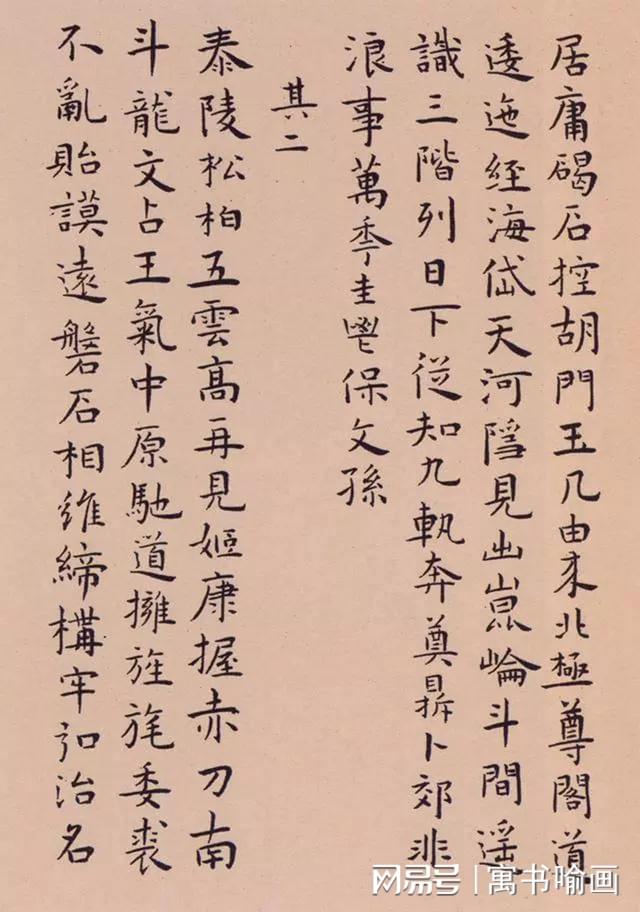 居庸碣石控胡門玉几由來北極尊閣道
逶迤經海岱天河隱見出崑崘斗間遥
識三階列日下從知九軌奔奠鼎卜郊非
浪事萬季圭鬯保文孫
其二
泰陵松柏五雲高再見姬康握赤刀南
斗龍文占王氣中原馳道擁旌旄委裘
不亂貽謨遠磐石相維締構牢弘治名
网易号 | 寓书喻画